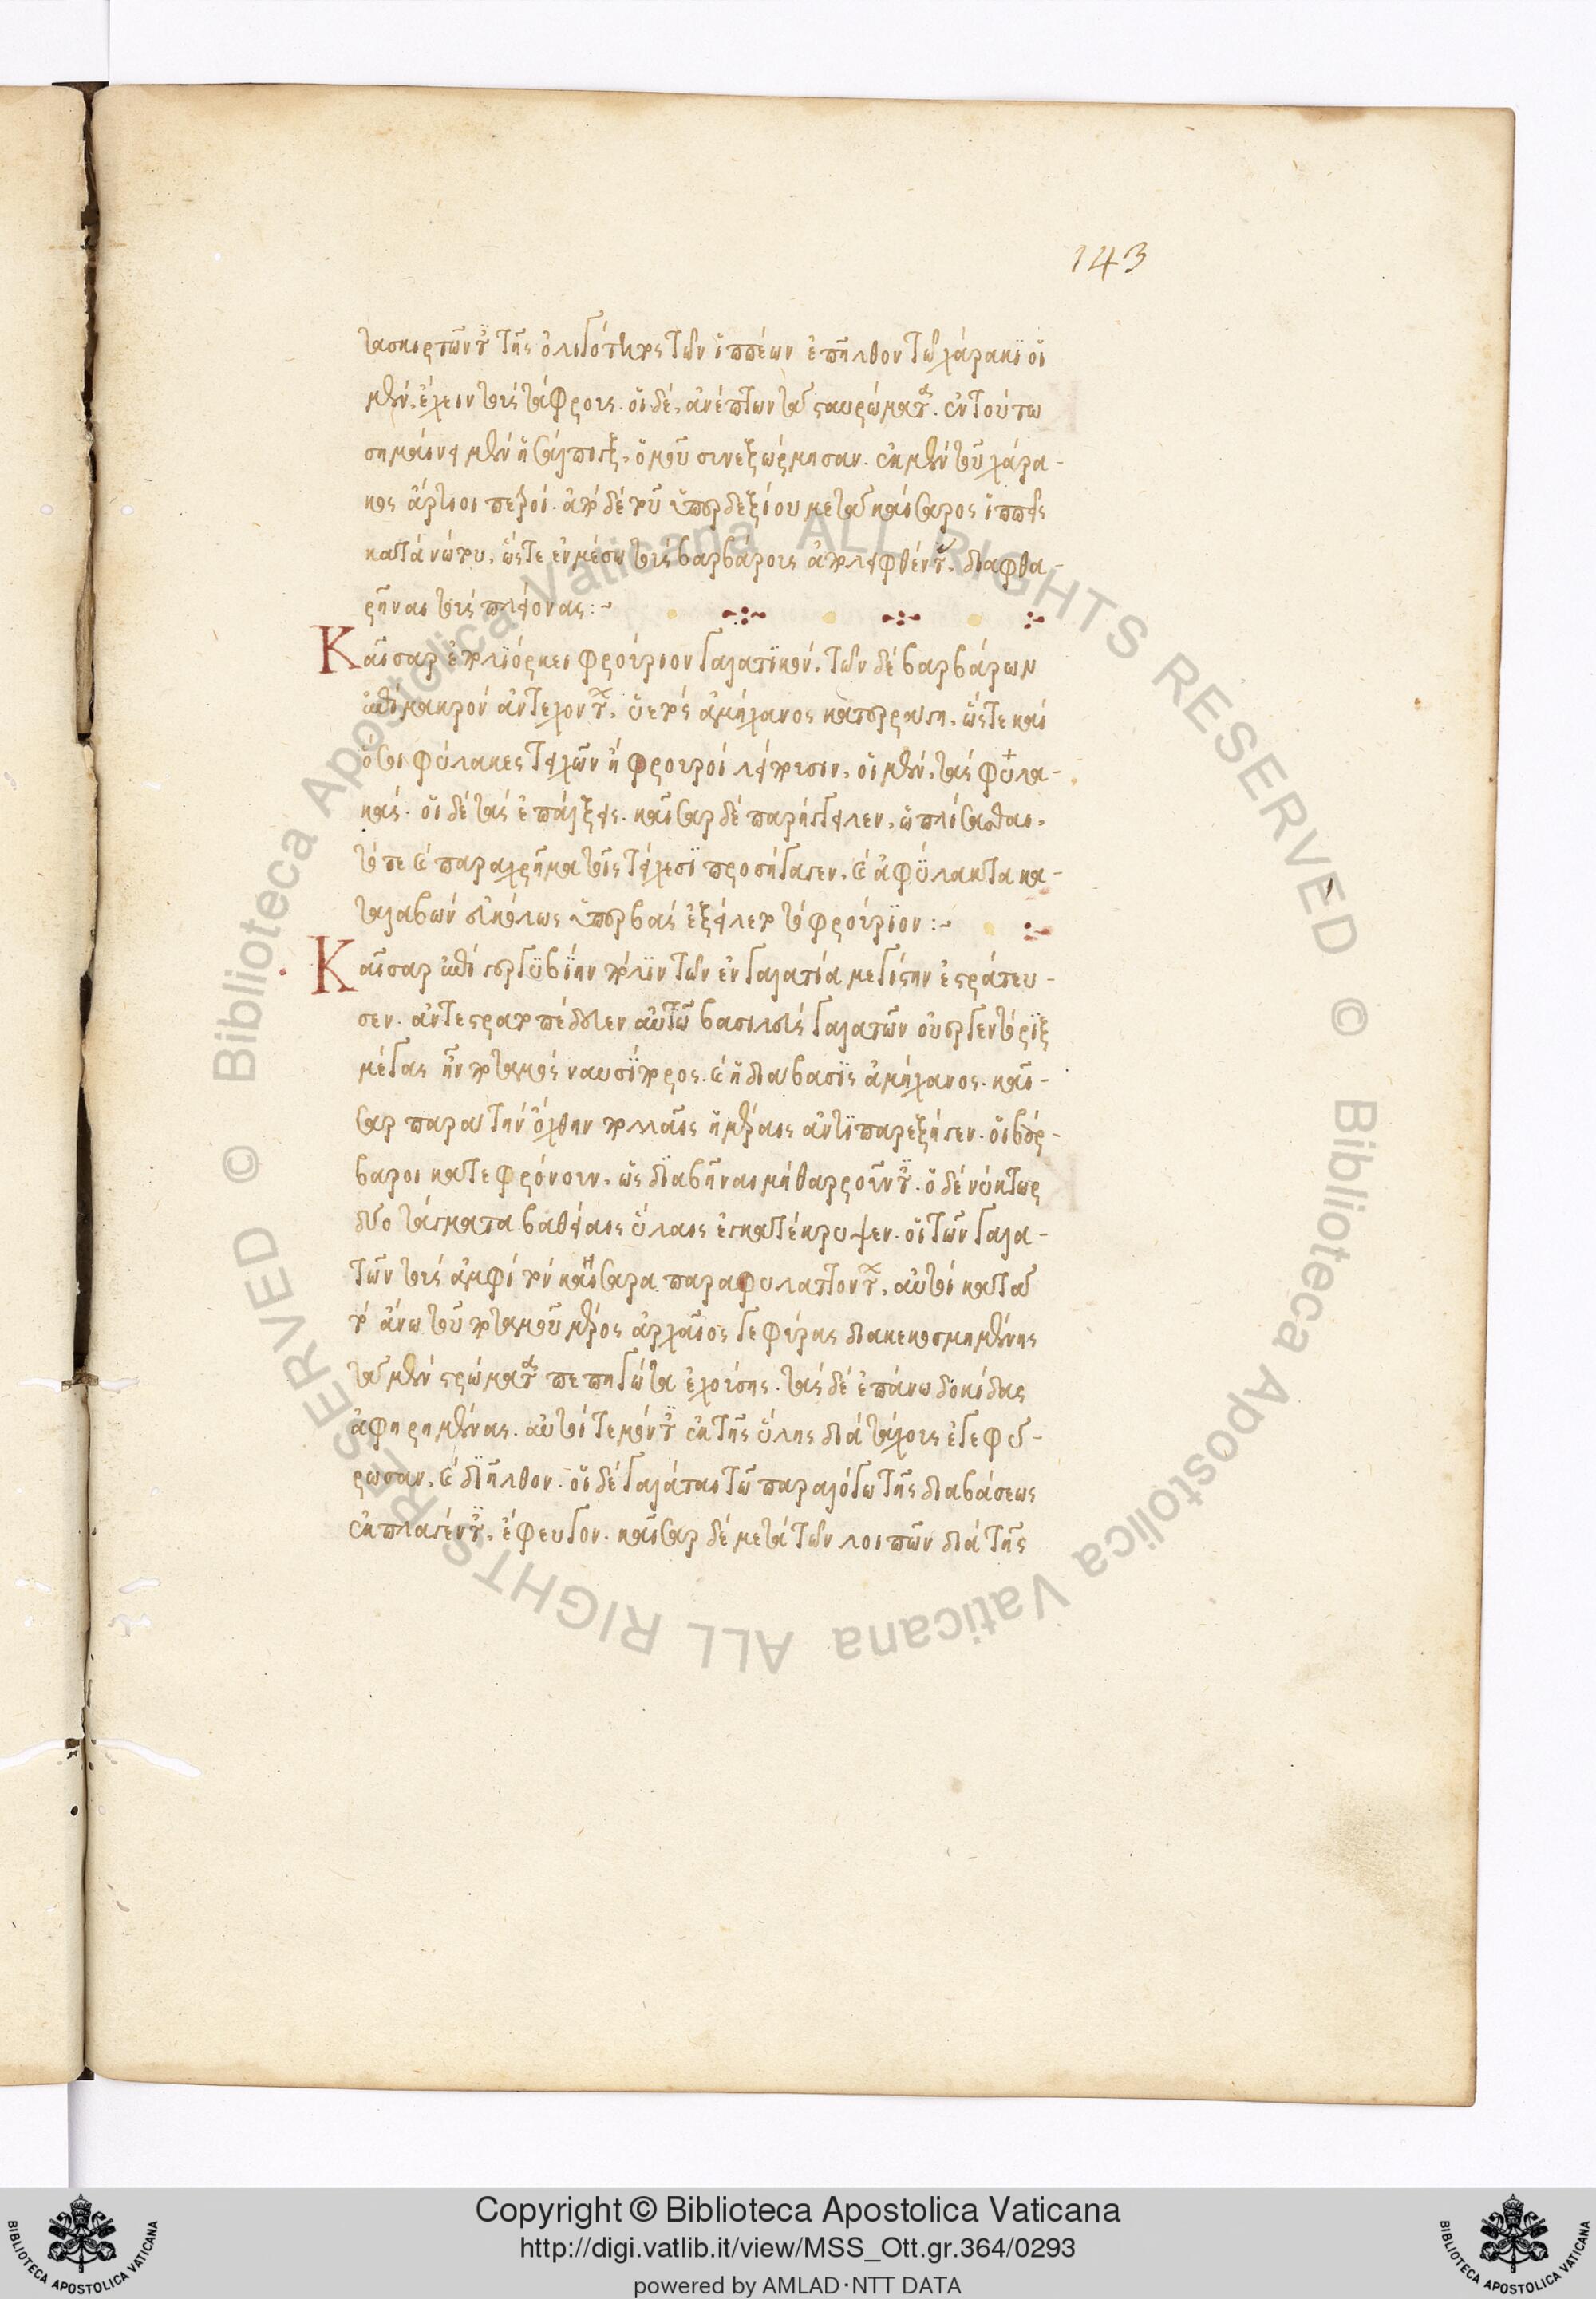 143
τασκιρτῶντες τῆς ὀλιγότητος τῶν ἱππέων ἐπῆλθον τῷ χάρακι οἱ
μὲν, ἔχειν τὰς τάφρους. οἱ δὲ, ἀνέπτων τὰ σταυρώματα. ἐν τούτω
σημαίνει μὲν ἡ σάλπιγξ, ὁμοῦ συνεξώρμησαν. ἐκ μὲν τοῦ χάρα-
κος ἄρτιοι πεζοί. ἀπὸ δὲ τοῦ ὑπερδεξίου μετὰ καίσαρος ἱππεῖς
κατὰ νώτου, ὥστε ἐν μέσω τοὺς βαρβάρους ἀποληφθέντας, διαφθα-
ρῆναι τοὺς πλείονας:~
Καῖσαρ ἐπολιόρκει φρούριον γαλατικὸν, τῶν δὲ βαρβάρων
ἐπὶ μακρὸν ἀντεχόντων, ὑετὸς ἀμήχανος κατερράγη, ὥστε καὶ
ὅσοι φύλακες τειχῶν ἢ φρουροὶ λείπουσιν, οἱ μὲν, τὰς φυλα-
κὰς. οἱ δὲ τὰς ἐπάλξεις. καῖσαρ δὲ παρήγγειλεν, ὁπλίσασθαι,
τότε καὶ παραχρῆμα τοῖς τείχεσι προσήγαγεν, καὶ ἀφύλακτα κα-
ταλαβὼν εὐκόλως ὑπερβὰς ἐξεῖλε τὸ φρούριον:~
Καῖσαρ ἐπὶ γεργοβίην πόλιν τῶν ἐν γαλατία μεγίστην ἐστράτευ-
σεν. ἀντεστρατοπέδευεν αὐτῶ βασιλεὺς γαλατῶν οὐεργεντόριξ
μέγας ἦν ποταμὸς ναυσίπορος. καὶ ἡ διάβασις ἀμήχανος. καῖ-
σαρ παρὰ τὴν ὄχθην πολλαῖς ἡμέραις ἀντιπαρεξήγεν. οἱ βάρ-
βαροι κατεφρόνουν, ὡς διαβῆναι μὴ θαρροῦντες. ὁ δὲ νύκτωρ
δύο τάγματα βαθείαις ὕλαις ἐγκατέκρυψεν. οἱ τῶν γαλα-
τῶν τοὺς ἀμφὶ τὸν καίσαρα παραφυλάττοντες, αὐτοὶ κατὰ
τὸ ἄνω τοῦ ποταμοῦ μέρος ἀρχαίας γεφύρας διακεκοσμημένης
τὰ μὲν στρώματα πεπηγότα ἐχούσης. τὰς δὲ ἐπάνω δοκίδας
ἀφηρημένας. αὐτοὶ τεμόντες ἐκ τῆς ὕλης διὰ τάχους ἐγεφύ-
ρωσαν, καὶ διῆλθον. οἱ δὲ γαλάται τῶ παραλόγω τῆς διαβάσεως
ἐκπλαγέντες, ἔφευγον. καῖσαρ δὲ μετὰ τῶν λοιπῶν διὰ τῆς
Copyright © Biblioteca Apostolica Vaticana
http://digi.vatlib.it/view/MSS_Ott.gr.364/0293
powered by AMLAD·NTT DATA
BIBLIOTECA APOSTOLICA VATICANA
BIBLIOTECA APOSTOLICA VATICANA
© Biblioteca Apostolica Vaticana ALL RIGHTS RESERVED
© Biblioteca Apostolica Vaticana ALL RIGHTS RESERVED